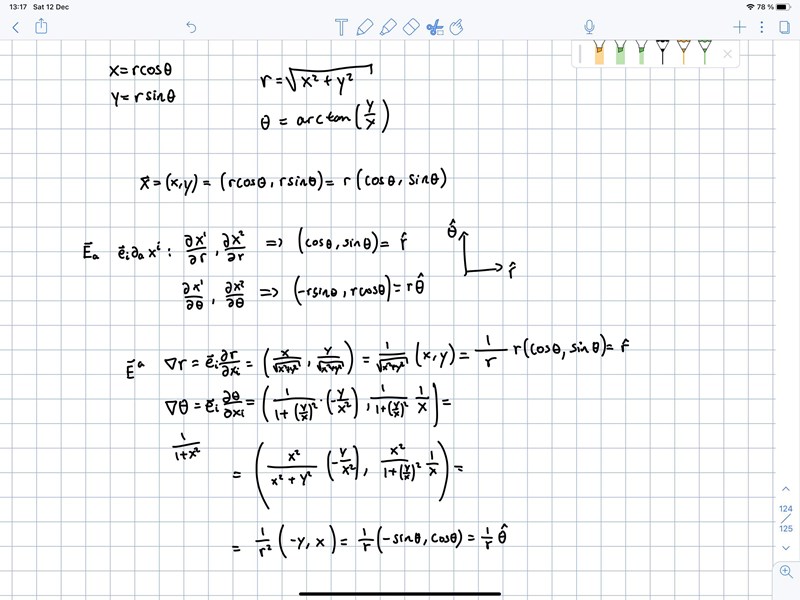 13:17 Sat 12 Dec
78 %
x = r cosθ
y = r sinθ
r = √(x² + y²)
θ = arctan(y/x)
x⃗ = (x,y) = (r cosθ, r sinθ) = r (cosθ, sinθ)
E⃗ₐ e⃗ᵢ∂ₐxⁱ : ∂x¹/∂r, ∂x²/∂r => (cosθ, sinθ) = r̂
∂x¹/∂θ, ∂x²/∂θ => (-r sinθ, r cosθ) = r θ̂
θ̂
r̂
E⃗ᵃ ∇r = e⃗ᵢ ∂r/∂xᵢ = (x/√(x²+y²), y/√(x²+y²)) = 1/√(x²+y²) (x,y) = 1/r r(cosθ, sinθ) = r̂
∇θ = e⃗ᵢ ∂θ/∂xᵢ = (1/(1+(y/x)²) · (-y/x²), 1/(1+(y/x)²) 1/x) =
1/(1+x²)
= (x²/(x²+y²) (-y/x²), x²/(1+(y/x)²) 1/x) =
= 1/r² (-y, x) = 1/r (-sinθ, cosθ) = 1/r θ̂
124
/
125